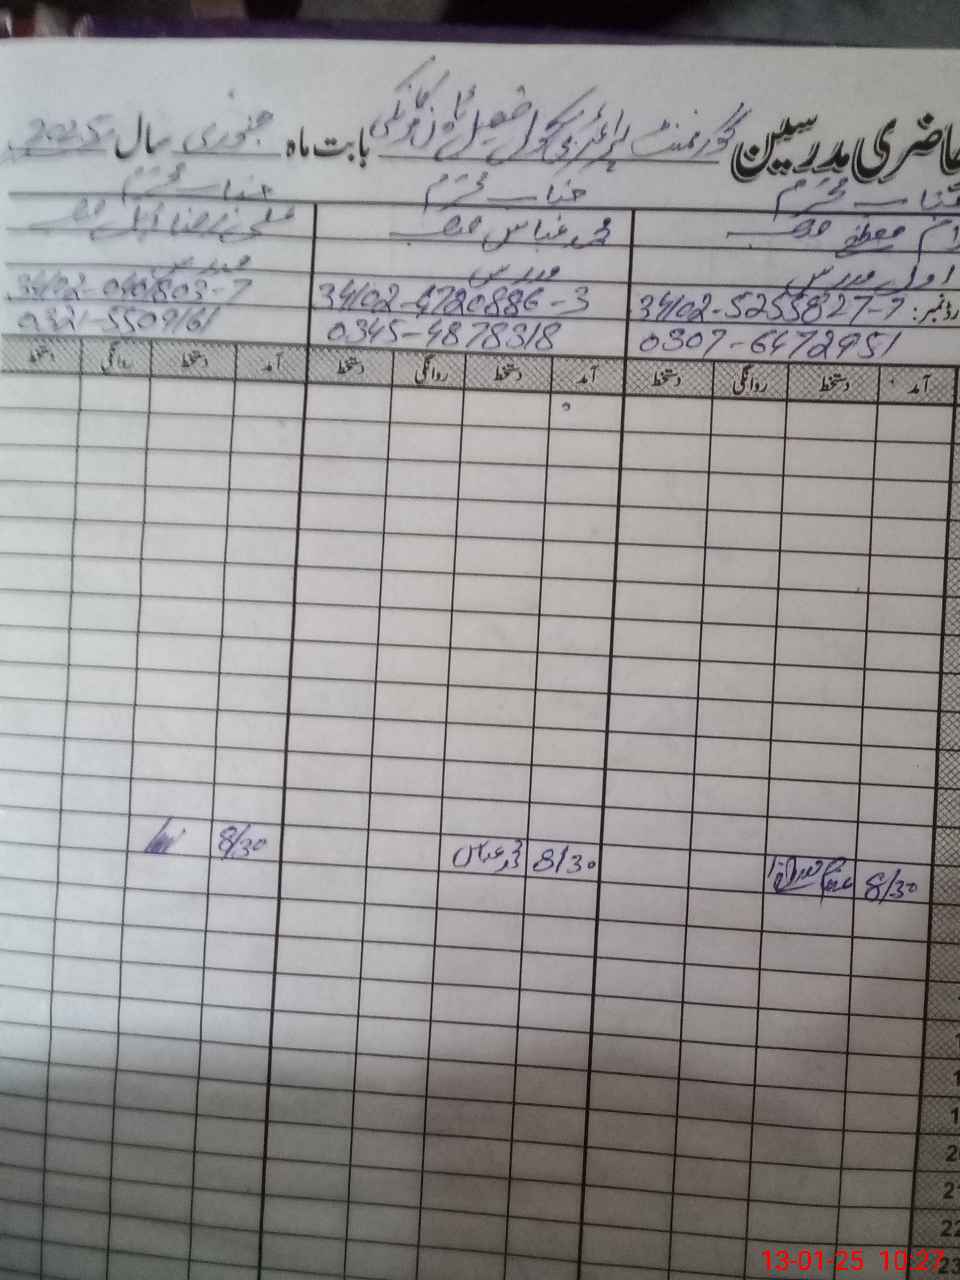 حاضری مدرسین گورنمنٹ پرائمری سکول فیصل ٹاؤن کامونکی بابت ماہ جنوری سال 2025
جناب محترم جناب محترم جناب محترم
معظم صاحب محمد عباس صاحب علی رضا صاحب
اول مدرس مدرس مدرس
34102-5255827-7 34102-4720886-3 34102-040803-7
0307-6472951 0345-4878318 0321-5509161
آمد دستخط روانگی دستخط آمد دستخط روانگی دستخط آمد دستخط روانگی دستخط
8/30 8/30 محمد عباس 8/30
21
22
23
13-01-25 10:27